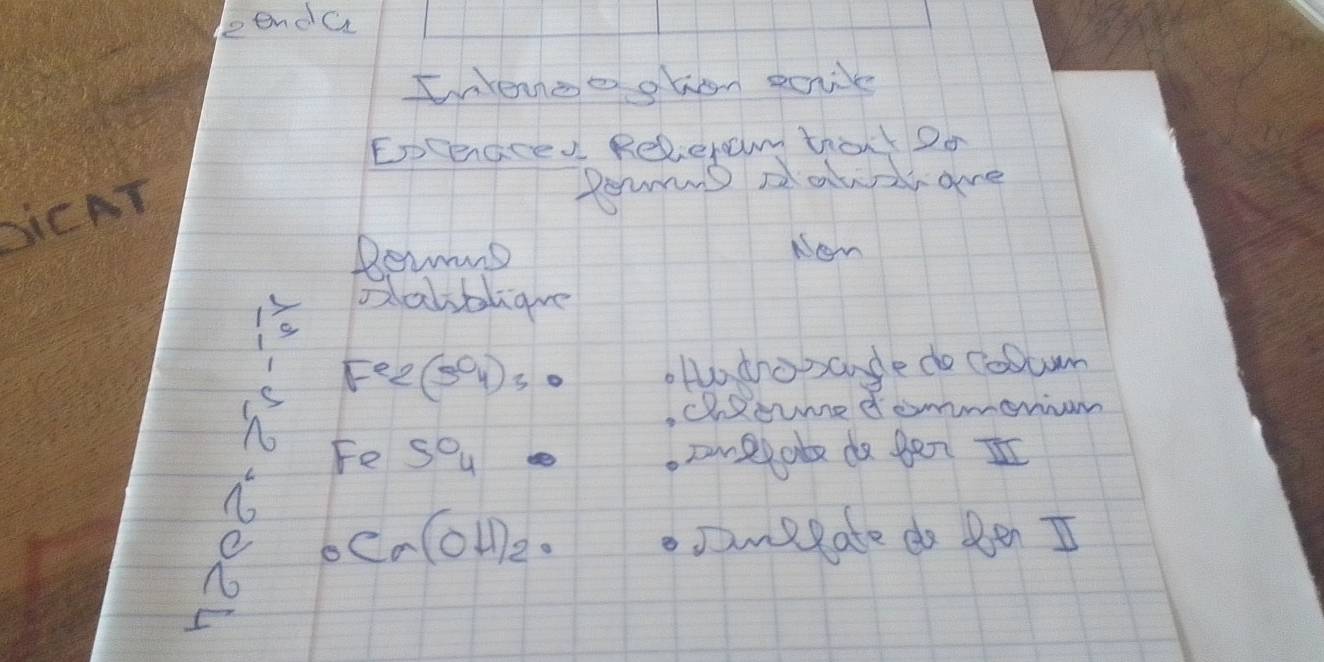 DiCAT
Interrogation écrite
Exercice 1 Relier par trait la
formule statistique
Formule
Nom
statistique
Fe2(SO4)3
Hydroxyde de calcium
chlorure d'ammonium
Fe SO4
sulfate de fer III
Ca(OH)2
sulfate de fer II